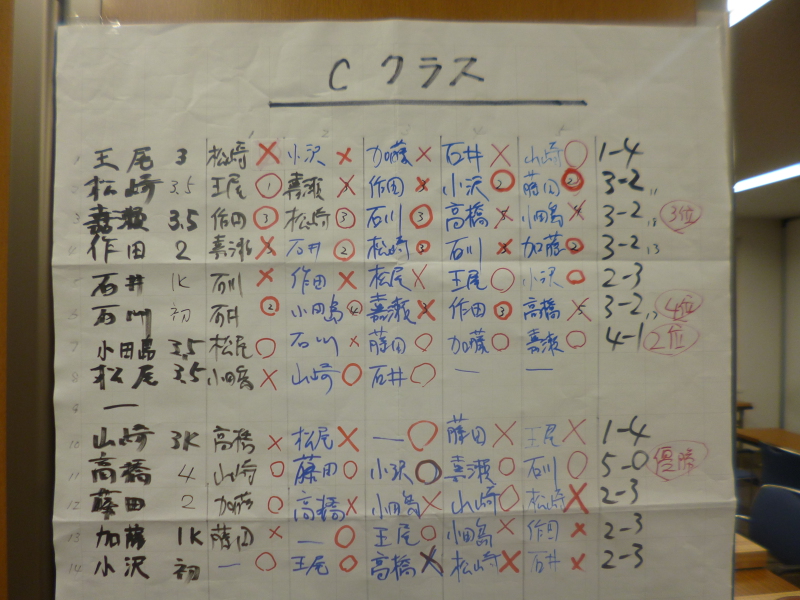 Cクラス
1 2 3 4 5
1 王尾 3 松崎 × 小沢 × 加藤 × 石井 × 山崎 ○ 1-4
2 松崎 3.5 王尾 ① 嘉瀬 × 作田 × 小沢 ② 藤田 ② 3-2 11
3 嘉瀬 3.5 作田 ③ 松崎 ③ 石川 ③ 高橋 × 小田島 × 3-2 18 3位
4 作田 2 嘉瀬 × 石井 ② 松崎 ③ 石川 × 加藤 ② 3-2 13
5 石井 1K 石川 × 作田 × 松尾 × 王尾 ○ 小沢 ○ 2-3
6 石川 初 石井 ② 小田島 ④ 嘉瀬 × 作田 ③ 高橋 × 3-2 4位
7 小田島 3.5 松尾 ○ 石川 × 藤田 ○ 加藤 ○ 嘉瀬 ○ 4-1 2位
8 松尾 3.5 小田島 × 山崎 ○ 石井 ○ — —
9 —
10 山崎 3K 高橋 × 松尾 × — ○ 藤田 × 王尾 × 1-4
11 高橋 4 山崎 ○ 藤田 ○ 小沢 ○ 嘉瀬 ○ 石川 ○ 5-0 優勝
12 藤田 2 加藤 ○ 高橋 × 小田島 × 山崎 ○ 松崎 × 2-3
13 加藤 1K 藤田 × — ○ 王尾 ○ 小田島 × 作田 × 2-3
14 小沢 初 — ○ 王尾 ○ 高橋 × 松崎 × 石井 × 2-3